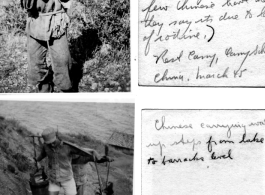 few Chinese
they say its due to
of nothing)
Rest Camp, Camp
China, March 45
Chinese carrying
up steps from lake
to barracks level